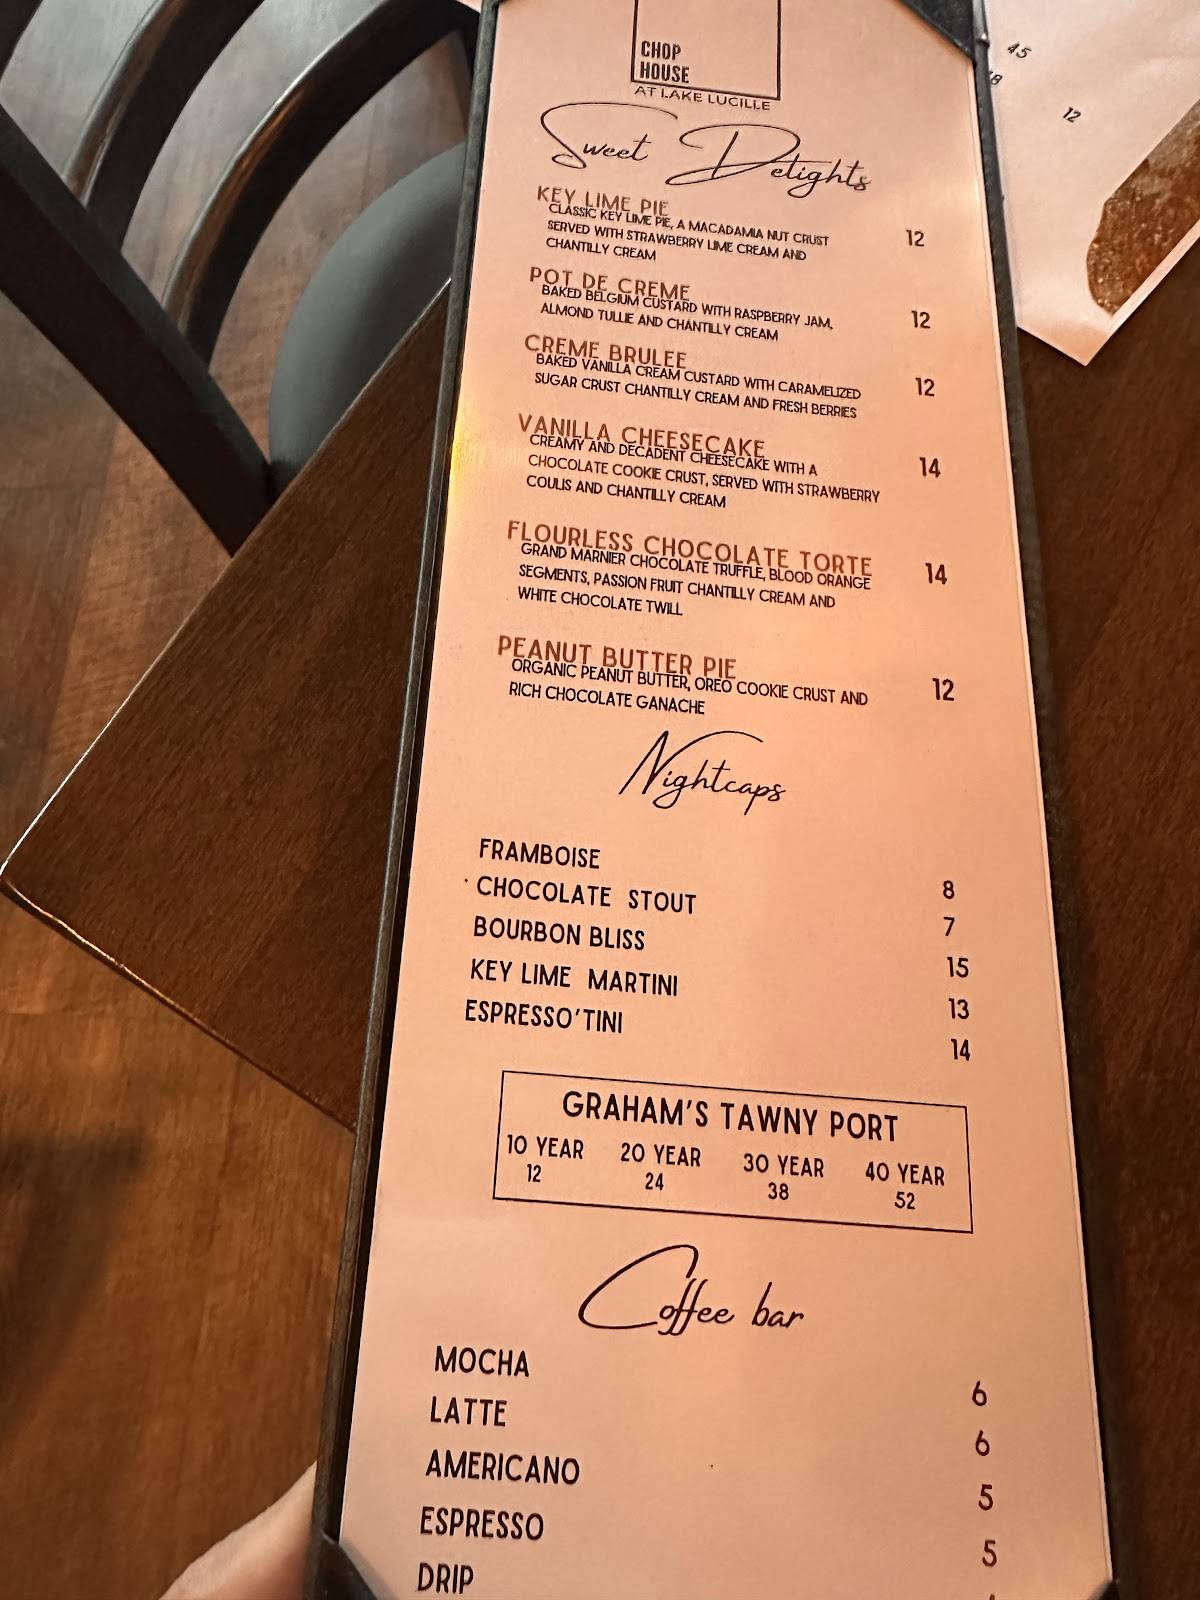 CHOP
HOUSE
AT LAKE LUCILLE
Sweet Delights
KEY LIME PIE
CLASSIC KEY LIME PIE, A MACADAMIA NUT CRUST
SERVED WITH STRAWBERRY LIME CREAM AND
CHANTILLY CREAM
12
POT DE CREME
BAKED BELGIUM CUSTARD WITH RASPBERRY JAM,
ALMOND TULLIE AND CHANTILLY CREAM
12
CREME BRULEE
BAKED VANILLA CREAM CUSTARD WITH CARAMELIZED
SUGAR CRUST CHANTILLY CREAM AND FRESH BERRIES
12
VANILLA CHEESECAKE
CREAMY AND DECADENT CHEESECAKE WITH A
CHOCOLATE COOKIE CRUST, SERVED WITH STRAWBERRY
COULIS AND CHANTILLY CREAM
14
FLOURLESS CHOCOLATE TORTE
GRAND MARNIER CHOCOLATE TRUFFLE, BLOOD ORANGE
SEGMENTS, PASSION FRUIT CHANTILLY CREAM AND
WHITE CHOCOLATE TWILL
14
PEANUT BUTTER PIE
ORGANIC PEANUT BUTTER, OREO COOKIE CRUST AND
RICH CHOCOLATE GANACHE
12
Nightcaps
FRAMBOISE 8
CHOCOLATE STOUT 7
BOURBON BLISS 15
KEY LIME MARTINI 13
ESPRESSO'TINI 14
GRAHAM'S TAWNY PORT
10 YEAR 20 YEAR 30 YEAR 40 YEAR
12 24 38 52
Coffee bar
MOCHA 6
LATTE 6
AMERICANO 5
ESPRESSO 5
DRIP
45
12